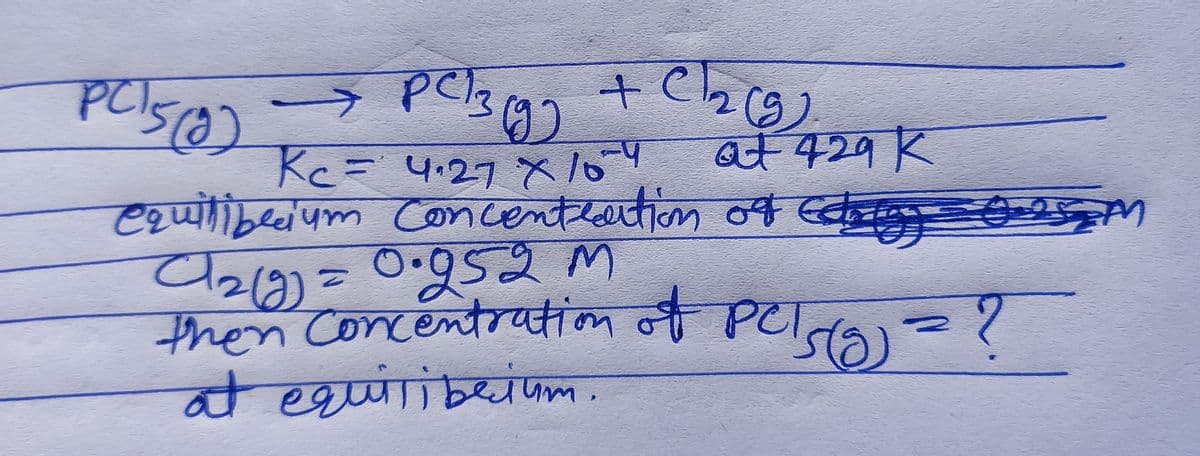 PCl5(g) → PCl3(g) + Cl2(g)
Kc = 4.27 × 10^-4 at 429 K
equilibrium concentration of
Cl2(g) = 0.952 M
then concentration of PCl5(g) = ?
at equilibrium.